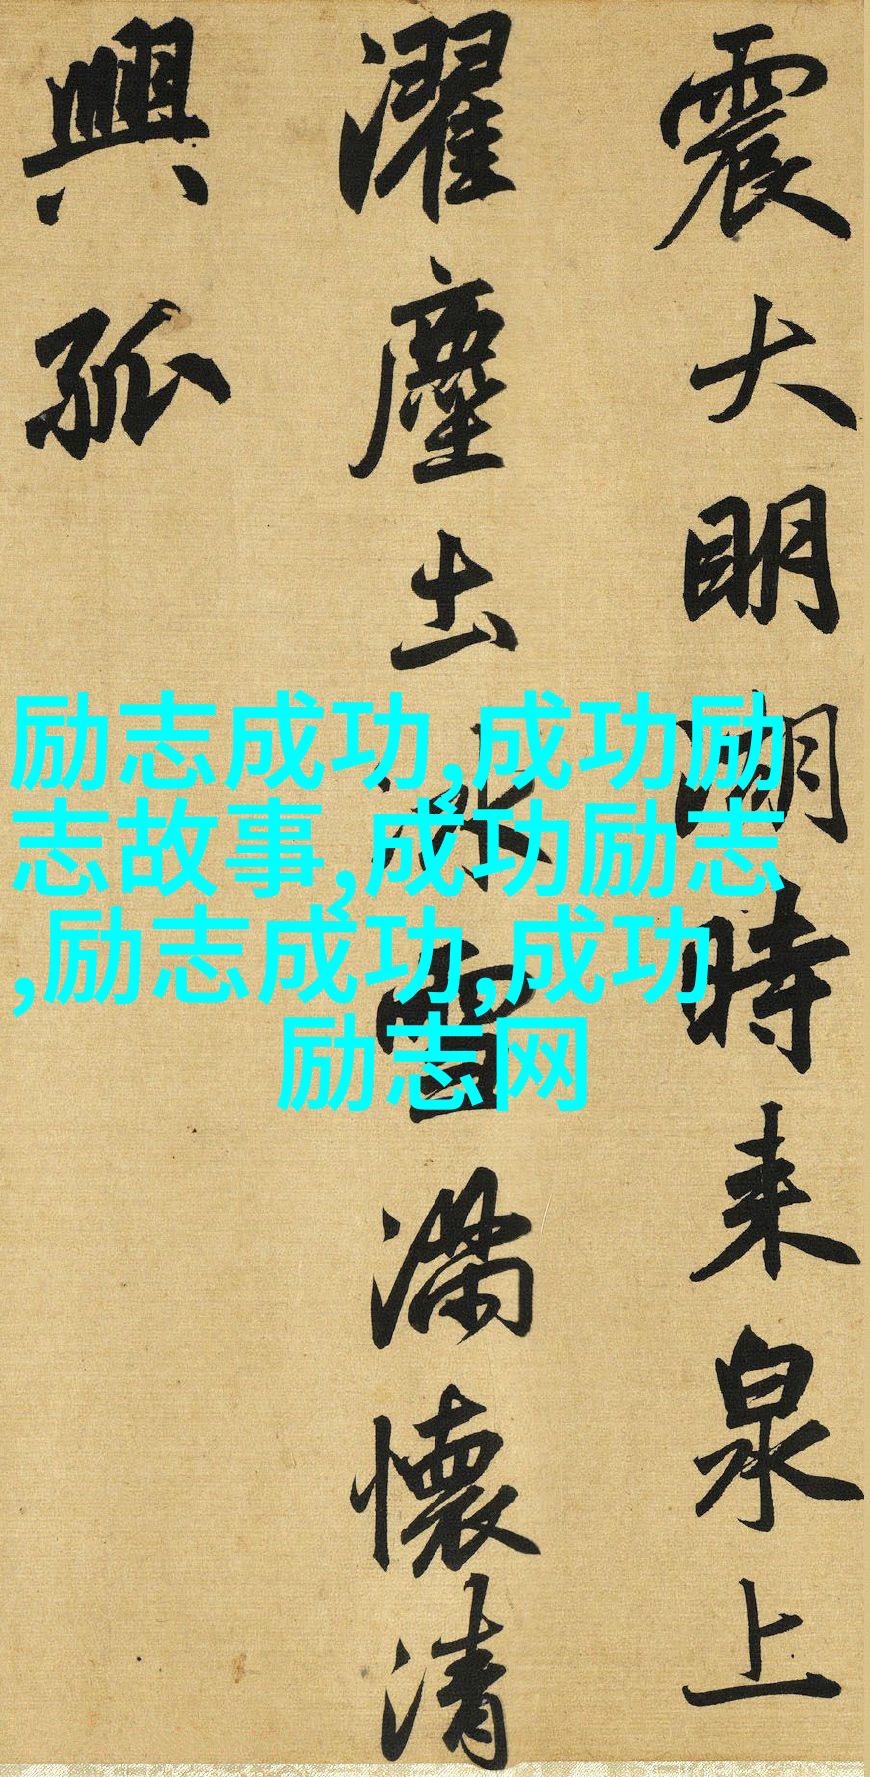 震大明湖時来泉上
濯塵土冰雪滿懷清
興孤
励志成功,成功励
志故事,成功励志
,励志成功,成功
励志网